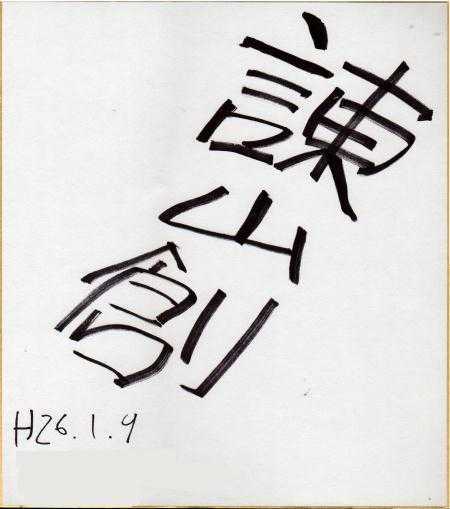 諫山創
H26.1.9